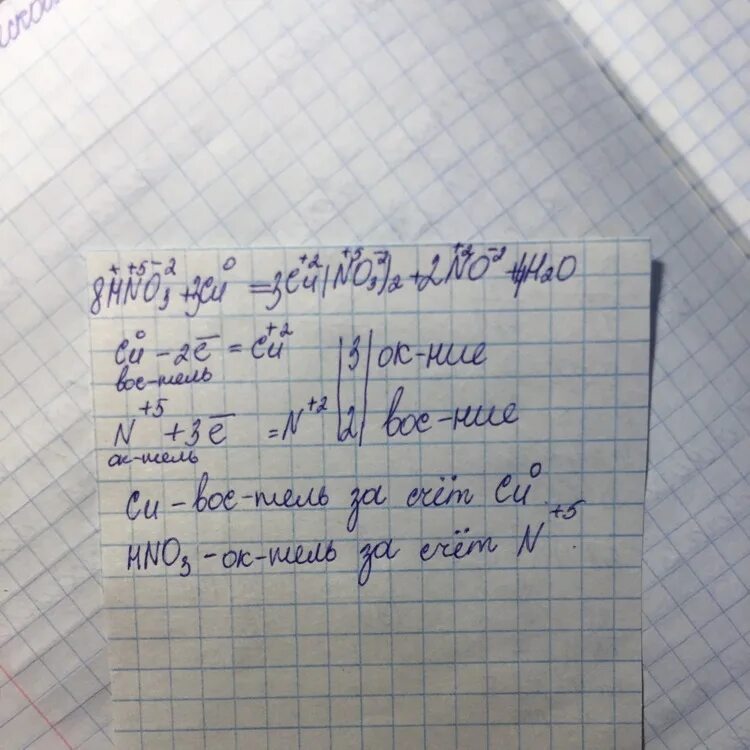 8H⁺N⁺⁵O₃⁻² + 3Cu⁰ = 3Cu⁺²(N⁺⁵O₃⁻²)₂ + 2N⁺²O⁻² + 4H₂O
Cu⁰ - 2e̅ = Cu⁺² |3| ок-ние
вос-тель
N⁺⁵ + 3e̅ = N⁺² |2| вос-ние
ок-тель
Cu - вос-тель за счёт Cu⁰.
HNO₃ - ок-тель за счёт N⁺⁵.